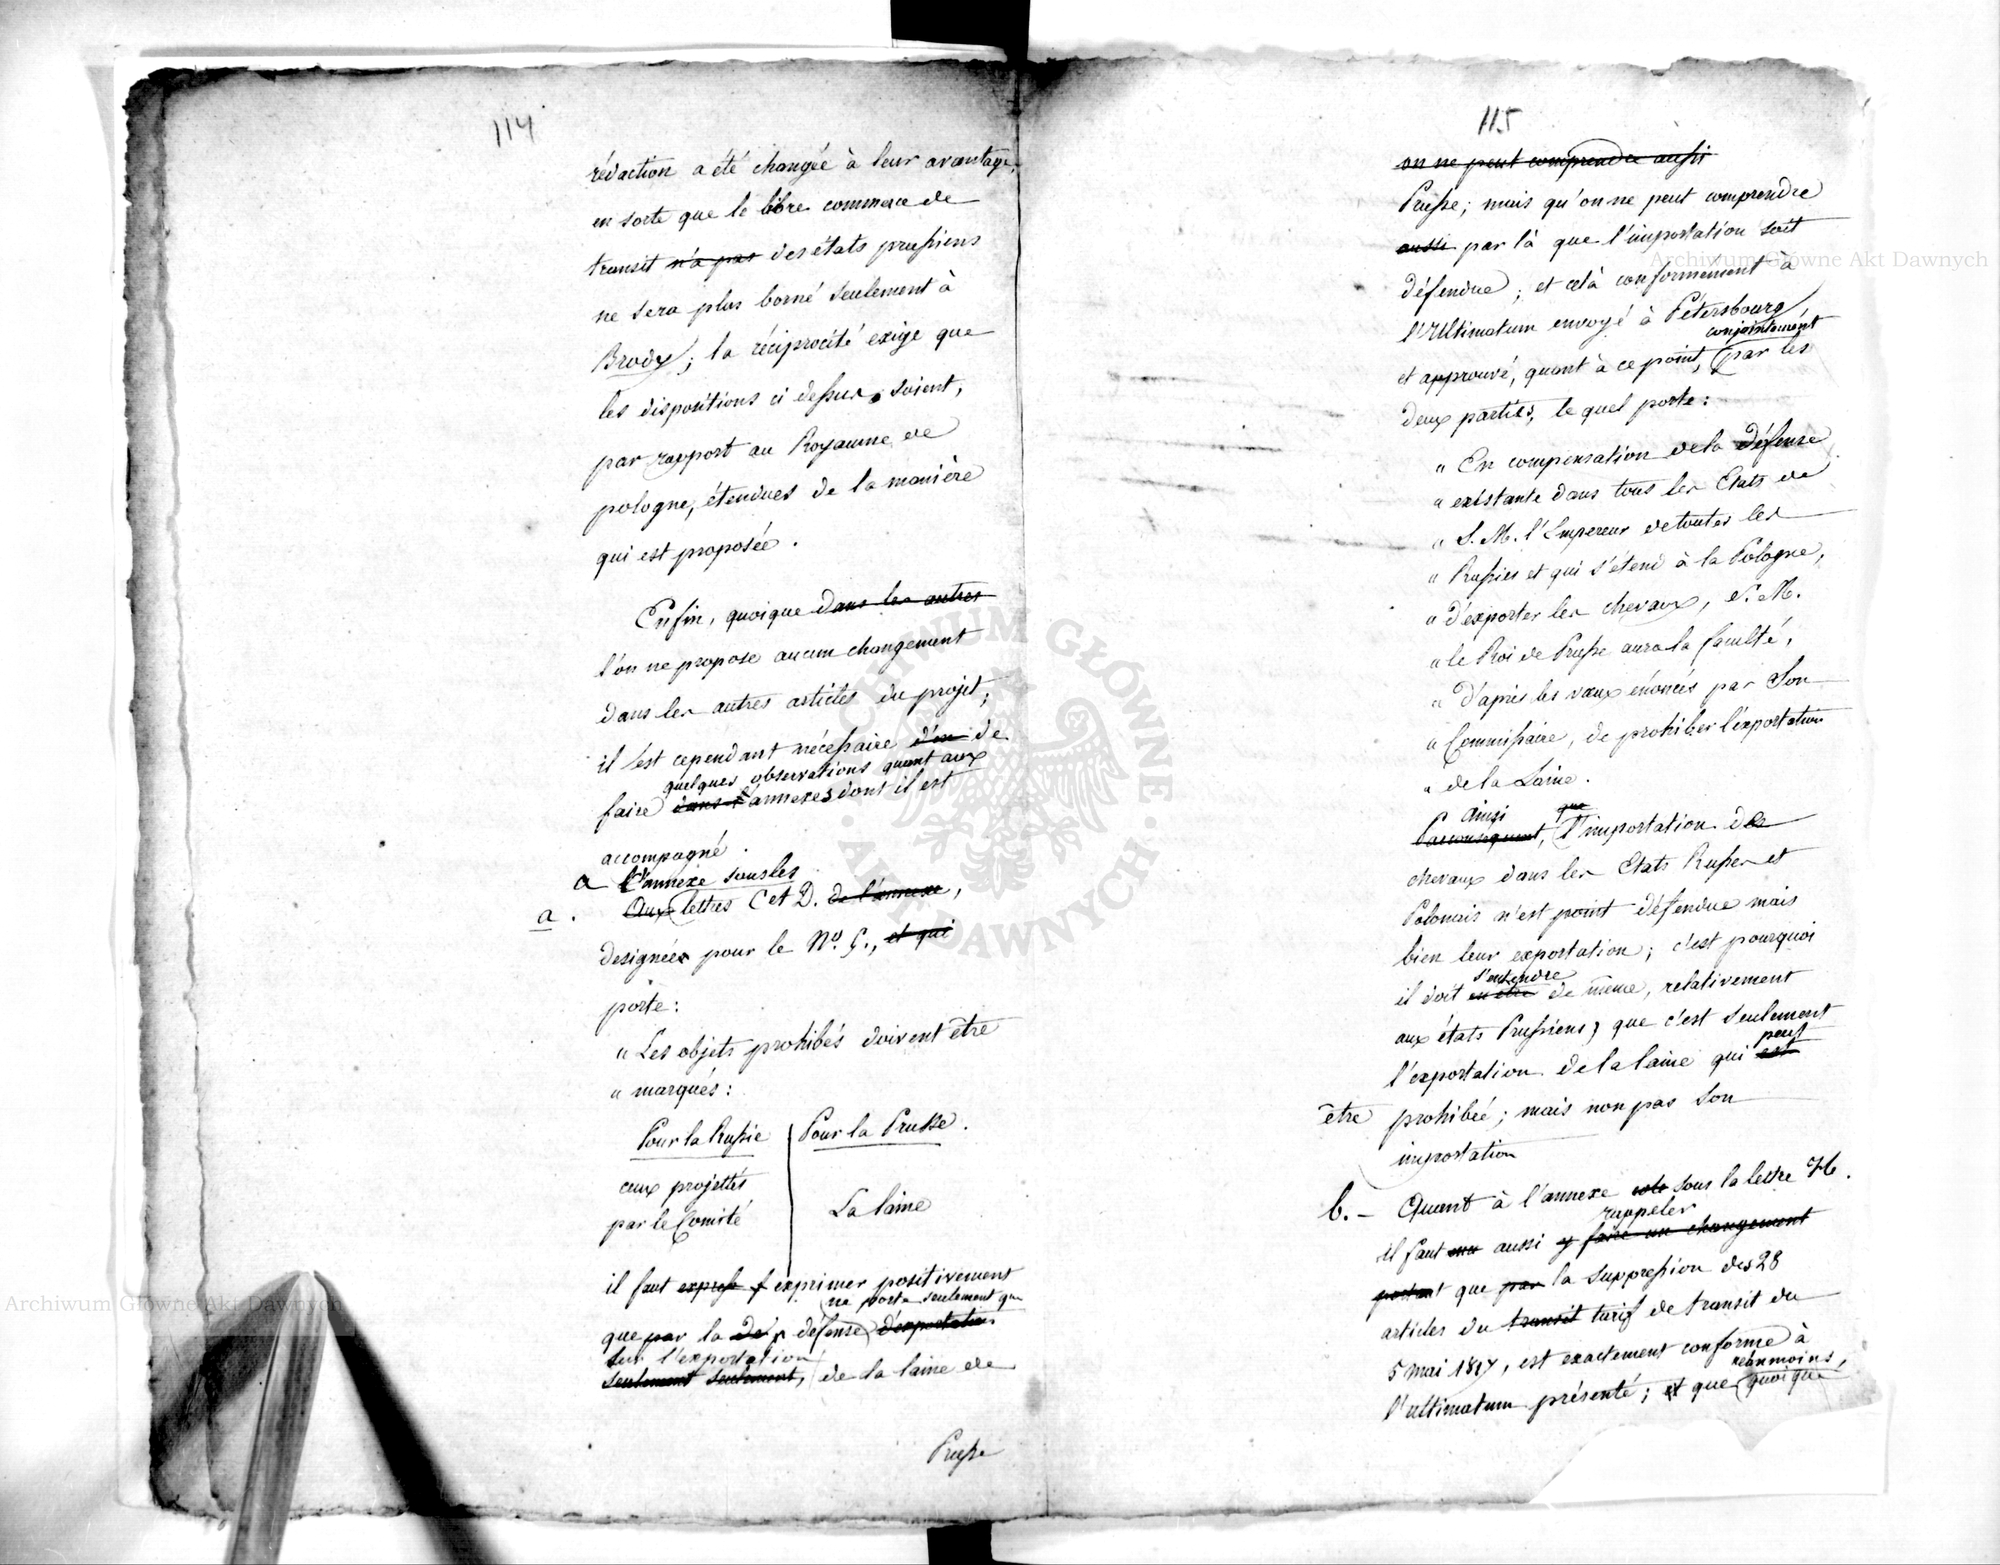 114
rédaction a été changée à leur avantage,
en sorte que le libre commerce de
transit n'a pas des états prussiens
ne sera plus borné seulement à
Brody; la réciprocité exige que
les dispositions ci dessus soient,
par rapport au Royaume de
pologne, étendues de la manière
qui est proposée.
Enfin, quoique dans les autres
l'on ne propose aucun changement
dans les autres articles du projet,
il est cependant nécessaire d'en de
quelques observations quant aux
faire dans l'annexes dont il est
accompagné.
a L'annexe sous les
a. Aux lettres C et D. de l'annexe,
designées pour le No. G., et qui
porte:
" Les objets prohibés doivent être
" marqués:
Pour la Russie Pour la Prusse.
ceux projettés
par le Comité La laine
il faut exprimer positivement
ne porte seulement que
que par la défense d'exportation
sur l'exportation
seulement seulement, de la laine de
Prusse
115
on ne peut comprendre aussi
Prusse; mais qu'on ne peut comprendre
aussi par là que l'importation soit
défendue; et celà conformement à
l'Ultimatum envoyé à Pétersbourg,
conjointement
et approuvé, quant à ce point, par les
deux parties, le quel porte:
" En compensation de la défense
" existante dans tous les Etats de
" S. M. l'Empereur de toutes les
" Russies et qui s'étend à la Pologne,
" d'exporter les chevaux, S. M.
" le Roi de Prusse aura la faculté,
" d'après les vœux énoncés par Son
" Commissaire, de prohiber l'exportation
" de la Laine.
Ainsi que
Parconsequent, l'importation des
chevaux dans les Etats Russes et
Polonais n'est point défendue mais
bien leur exportation; c'est pourquoi
s'entendre
il doit en être de même, relativement
aux états Prussiens, que c'est seulement
peut
l'exportation de la laine qui est
être prohibée; mais non pas Son
importation
b. - Quant à l'annexe sous la lettre H.
rappeler
il faut aussi y faire un changement
portant que par la suppression des 28
articles du transit tarif de transit du
5 mai 1817, est exactement conforme à
néanmoins,
l'ultimatum présenté; et que quoique